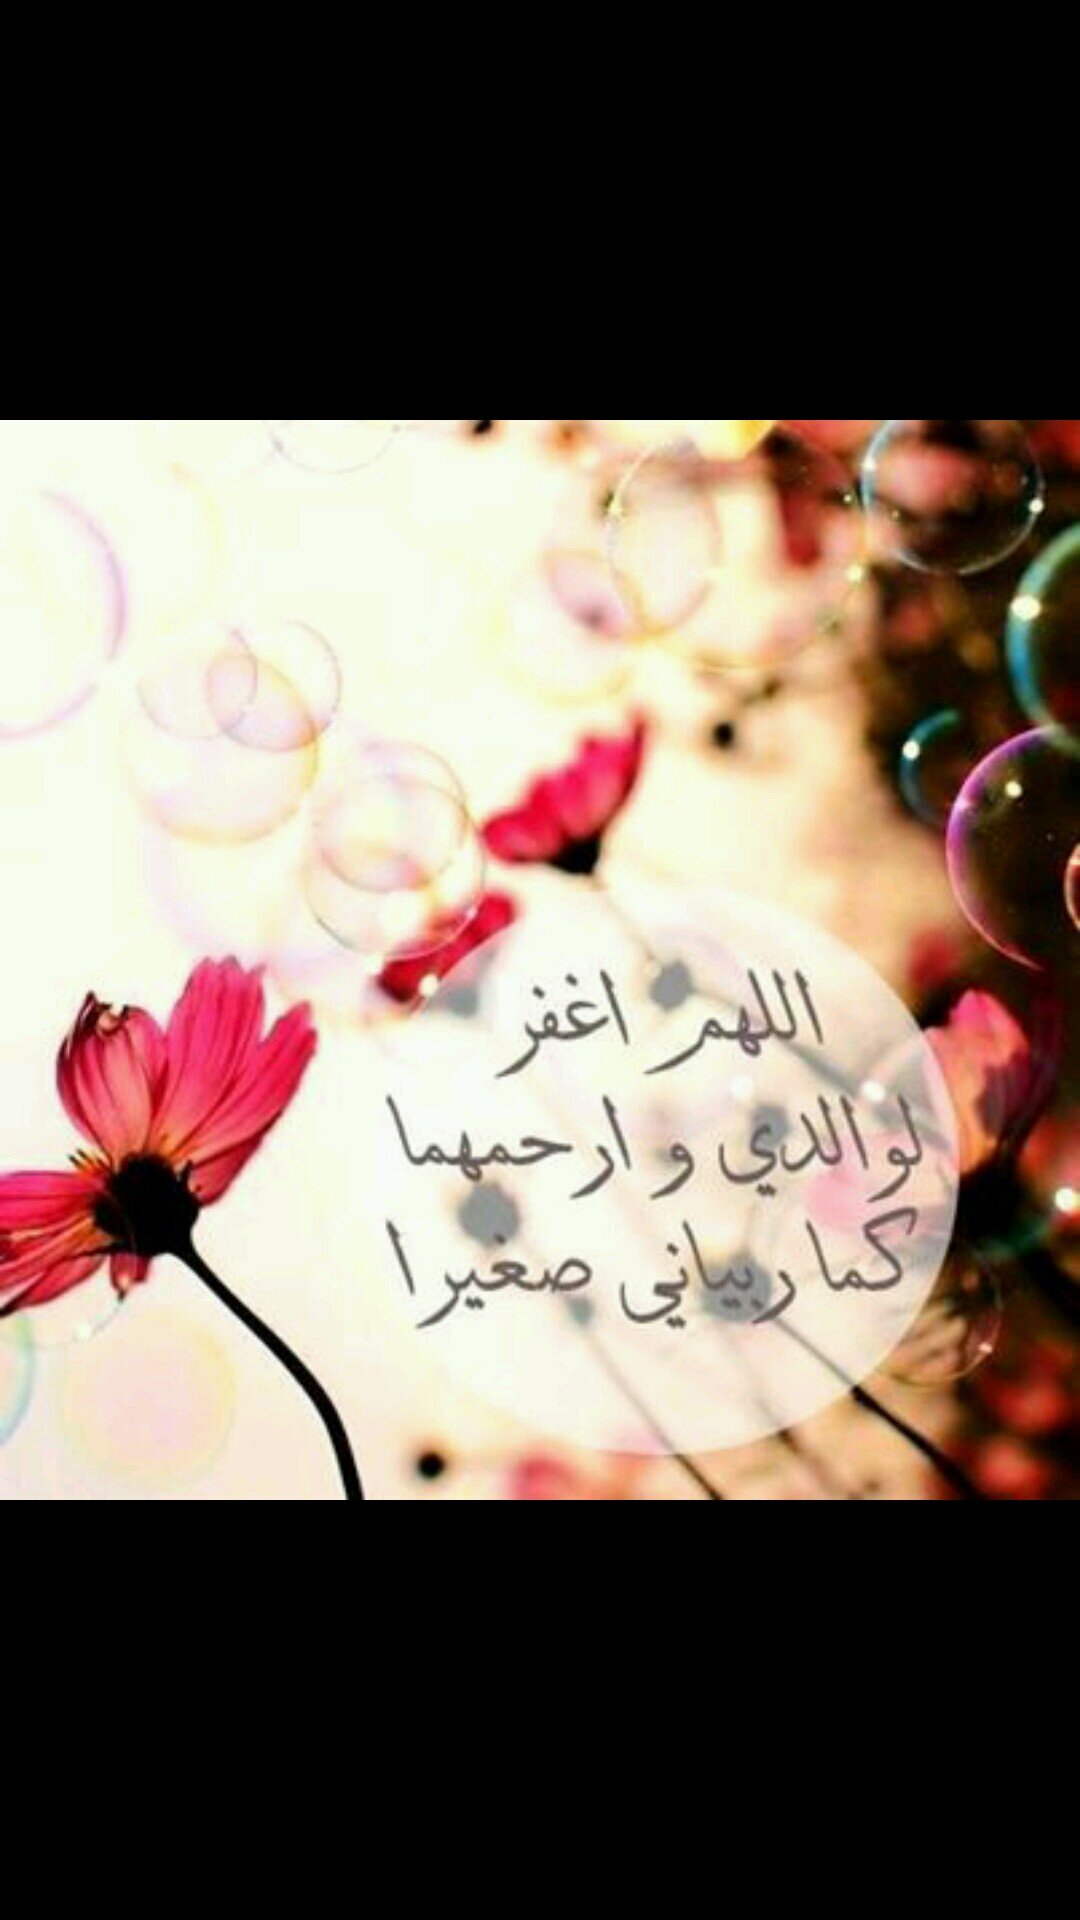 اللهم اغفر
لوالدي و ارحمهما
كما ربياني صغيرا